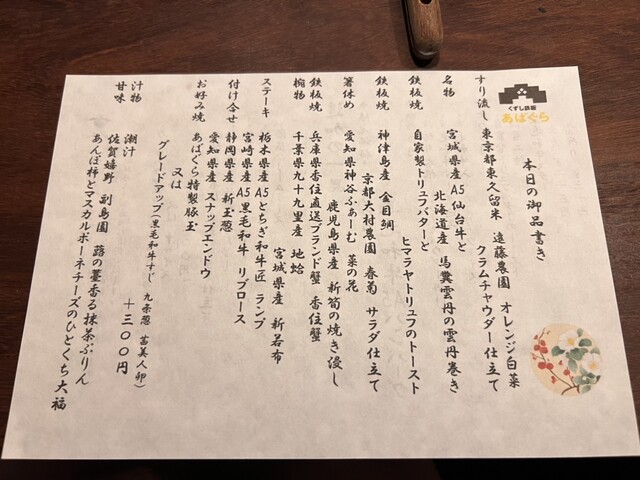 くずし鉄板
あばぐら
本日の御品書き
すり流し 東京都東久留米 遠藤農園 オレンジ白菜
クラムチャウダー仕立て
名物 宮城県産A5仙台牛と
北海道産 馬糞雲丹の雲丹巻き
鉄板焼 自家製トリュフバターと
ヒマラヤトリュフのトースト
鉄板焼 神津島産 金目鯛
京都大村農園 春菊 サラダ仕立て
箸休め 愛知県神谷ふぁーむ 菜の花
鹿児島県産 新筍の焼き浸し
鉄板焼 兵庫県香住直送ブランド蟹 香住蟹
椀物 千葉県九十九里産 地蛤
宮城県産 新若布
ステーキ 栃木県産A5とちぎ和牛匠 ランプ
宮崎県産A5黒毛和牛 リブロース
付け合せ 静岡県産 新玉葱
愛知県産 スナップエンドウ
お好み焼 あばぐら特製豚玉
又は
グレードアップ(黒毛和牛すじ 九条葱 茜美人卵)
+三〇〇円
汁物 潮汁
甘味 佐賀嬉野 副島園 蕗の薹香る抹茶ぷりん
あんぽ柿とマスカルポーネチーズのひとくち大福